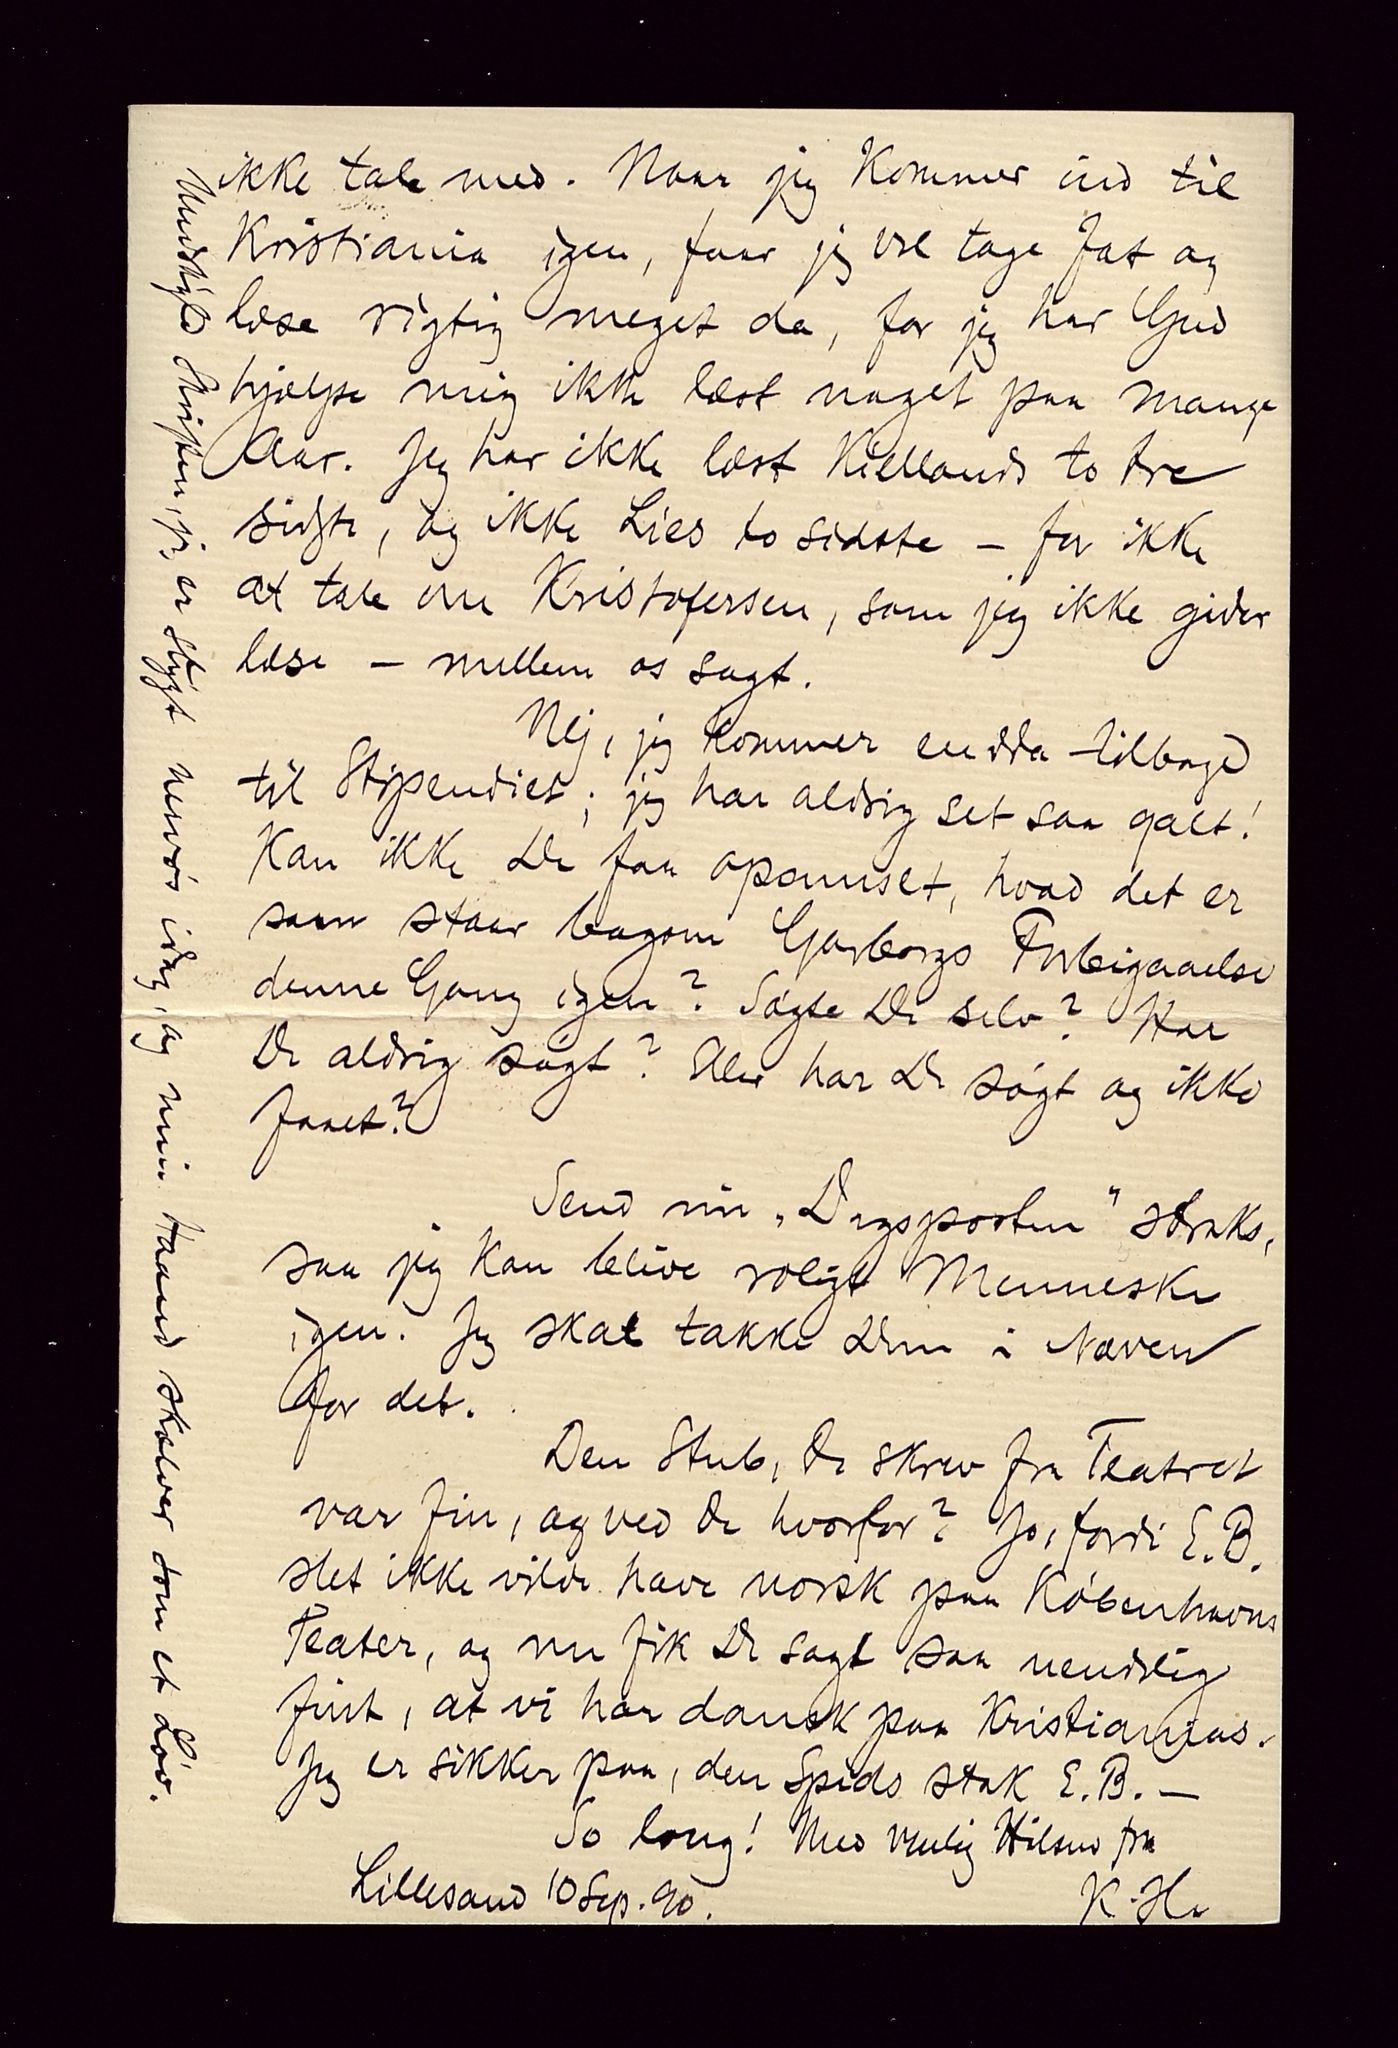 ikke tale med. Naar jeg kommer ind til
Kristiania igen, faar jeg vel tage fat og
læse rigtig meget da, for jeg har Gud
hjælpe mig ikke læst noget paa mange
Aar. Jeg har ikke læst Kiellands to tre
sidste, og ikke Lies to sidste — for ikke
at tale om Kristofersen, som jeg ikke gider
læse — mellem os sagt.
Nej, jeg kommer endda tilbage
til Stipendiet; jeg har aldrig set saa galt!
Kan ikke De faa opsnuset, hvad det er
som staar bagom Garborgs Forbigaaelse
denne Gang igen? Søgte De selv? Har
De aldrig søgt? Eller har De søgt og ikke
faaet?
Send mig „Dagsposten" straks,
saa jeg kan blive roligt Menneske
igen. Jeg skal takke Dem i Næven
for det.
Den Stub, De skrev fra Teatret
var fin, og ved De hvorfor? Jo, fordi E.B.
slet ikke vilde have norsk paa Københavns
Teater, og nu fik De sagt saa uendelig
fint, at vi har dansk paa Kristianias.
Jeg er sikker paa, den Spids stak E.B. —
So long! Med venlig Hilsen fra
Lillesand 10 Sep. 90. K. H.
Undskyld Skriften, jeg er stygt nervøs idag, og min Haand skælver som et Løv.